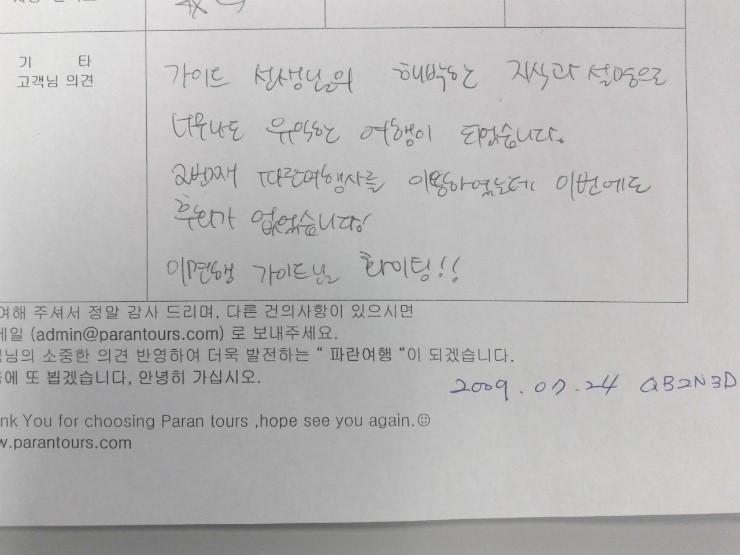 기 타
고객님 의견
가이드 선생님의 해박한 지식과 설명으로
너무나도 유익한 여행이 되었습니다.
2번째 파란여행사를 이용하였는데 이번에도
후회가 없었습니다!
가이드님 화이팅!!
여해 주셔서 정말 감사 드리며, 다른 건의사항이 있으시면
메일 (admin@parantours.com) 로 보내주세요.
님의 소중한 의견 반영하여 더욱 발전하는 “ 파란여행 “이 되겠습니다.
에 또 뵙겠습니다, 안녕히 가십시오.
2009. 07. 24 QB2N3D
nk You for choosing Paran tours ,hope see you again.☺
w.parantours.com